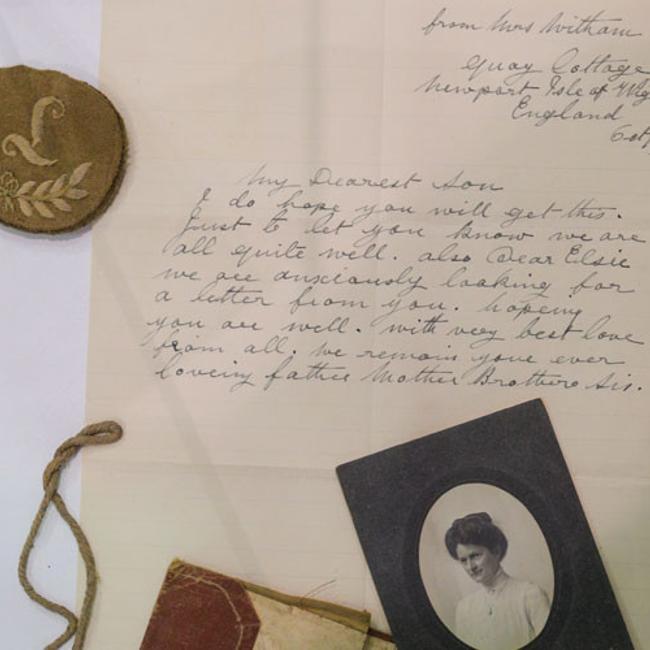 from Mrs Witham
Quay Cottage
Newport Isle of Wig
England
My Dearest Son
I do hope you will get this.
Just to let you know we are
all quite well. also Dear Elsie
we are anxiously looking for
a letter from you. hopeing
you are well. with very best love
from all. we remain youe ever
loveing father Mother Brothers Sis.
L